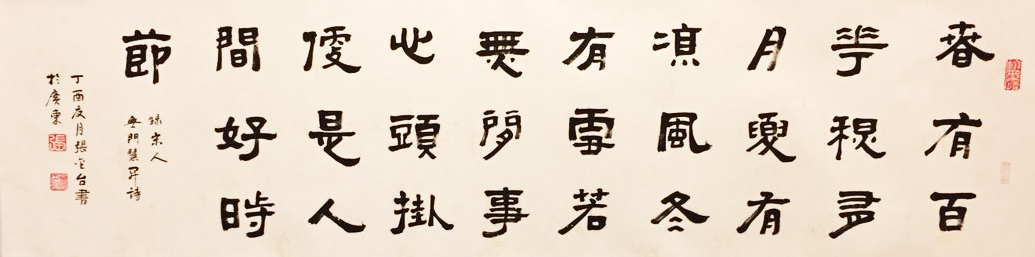 春有百
花秋多
月夏有
凉風冬
有雪若
無閑事
心頭掛
便是人
間好時
節
錄宋人
無門慧開詩
丁酉夏月張金台書
於廣東